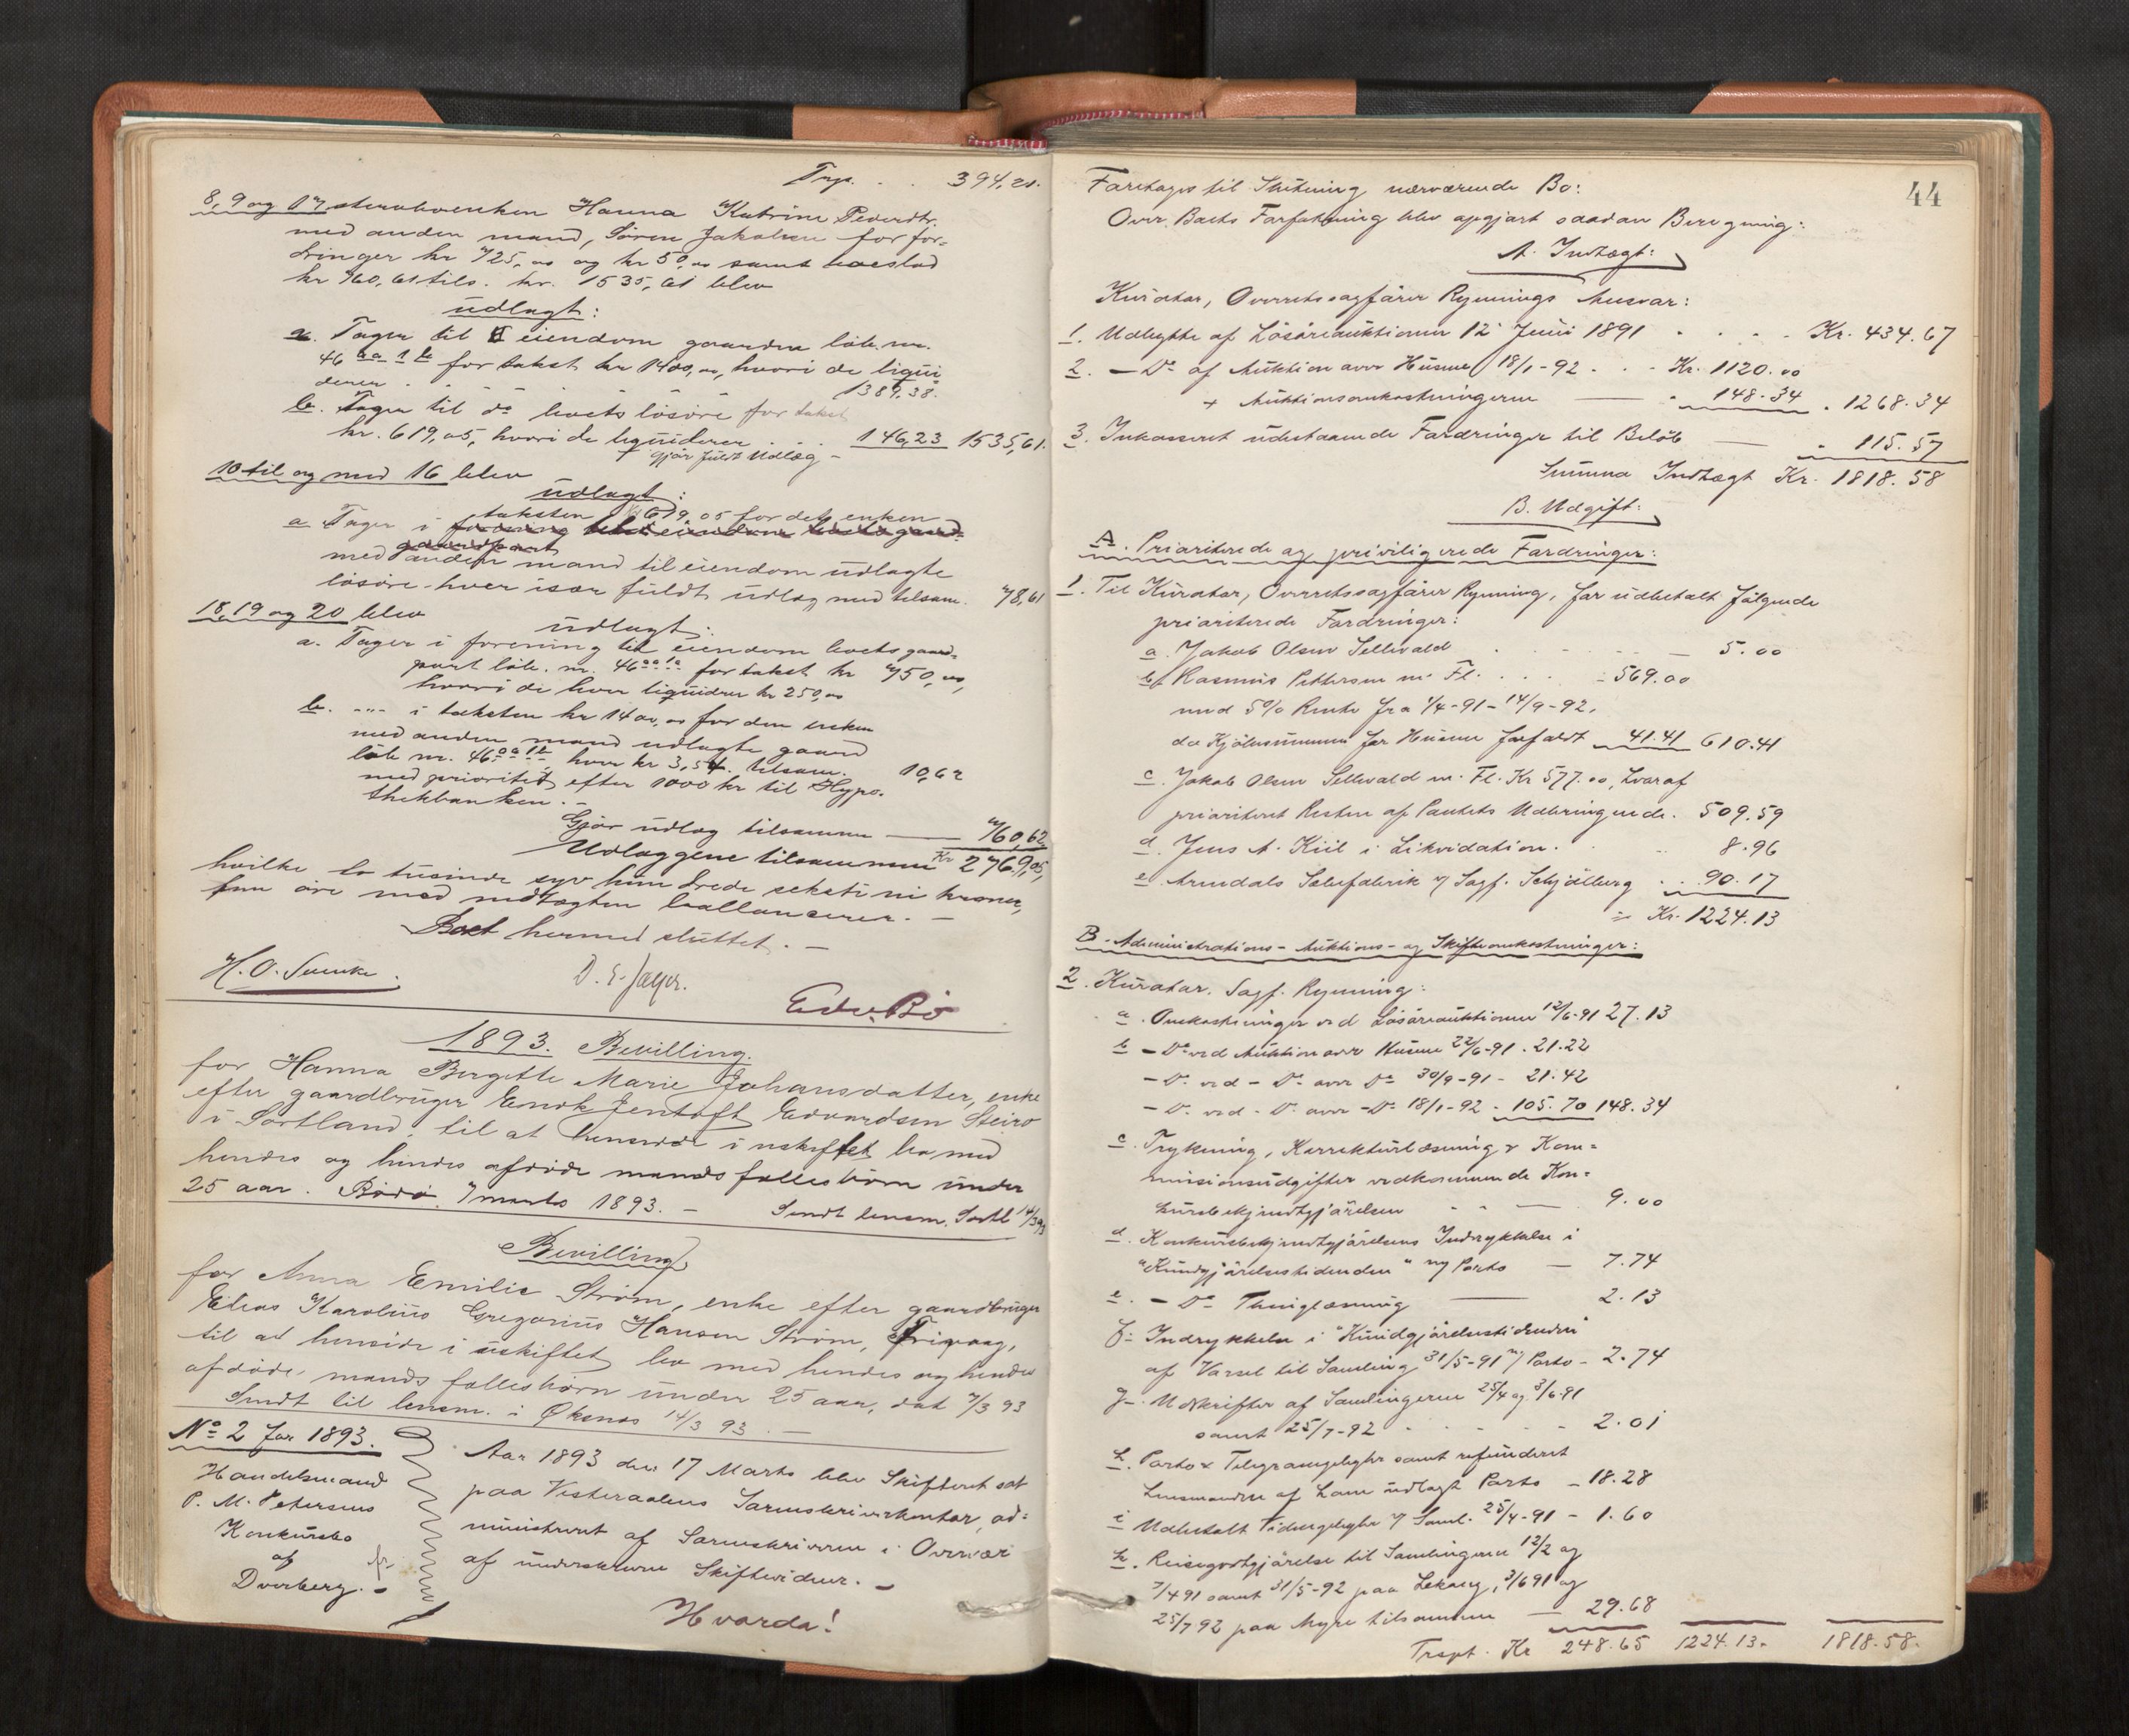 Trp. . . 394,21.
8, 9 og 17, sterbohvenken Hanna Katrine Pedersdtr.
med anden mand, Sören Jakobsen for for-
dringer kr 725,00 og kr 50,00 samt boeslod
kr 760,61 tils. kr. 1535,61 blev
udlagt:
a. Tager til eiendom gaarden löb. nr.
46 aa 1 b for takst kr 1400,00, hvori de liqui
derer . . . . . . 1389,38.
b. Tager til do boets lösöre for takst
kr. 619,05, hvori de liquiderer . . . 146,23 1535,61.
gjör fuldt Udlæg -
10 til og med 16 blev
udlagt:
taksten kr 619,05 for det enken
a Tager i
med anden mand til eiendom udlagte
lösöre hver især fuldt udlæg med tilsam. 78,61
18, 19 og 20 blev
udlagt:
a. Tager i forening til eiendom boets gaard-
part löb. nr. 46 aa 1a for takst kr 750,00,
hvori de hver liquiderer kr 250,00
b. -"- i taksten kr 1400,00 for den enken
med anden mand udlagte gaard
löb nr. 46 aa 1b, hver kr 3,54. tilsam. 10,62
med prioritet efter 1000 kr til Hypo-
thekbanken. -
Gjör udlæg tilsammen — 760,62
Udlæggene tilsammen Kr 2769,05,
hvilke to tusinde syv hundrede seksti ni kroner,
fem öre med indtægten ballancerer. -
Boet hermed sluttet. -
H. O. D. E. Jæger. Edv. Bö
1893. Bevilling.
for Hanna Bergitte Marie Johansdatter, enke
efter gaardbruger Enok Jentoft Edvardsen Steiro
i Sortland, til at hensidde i uskiftet bo med
hendes og hendes afdöde mands fællesbörn under
25 aar. Bodö, 7 marts 1893. - Sendt lensm. Sortl 14/3 93
Bevilling
for Anna Emilie Ström, enke efter gaardbruger
Elias Karolius Gregorius Hansen Ström,
til at henside i uskiftet bo med hendes og hendes
afdöde mands fællesbörn under 25 aar, dat 7/3 93
Sendt til lensm. i Öksnes 14/3 93. -
No 2 for 1893.
Handelsmand
P. M. Petersens
Konkursbo
af
Dverberg. -
Aar 1893 den 17 Marts blev Skifteret sat
paa Vesteraalens Sorenskriverkontor, ad-
ministreret af Sorenskriveren i Overvær
af underskrevne Skiftevidner. -
Hvorda!
44
Foretages til Slutning nærværende Bo:
Over Boets Forfatning blev opgjort saadan Beregning:
A. Indtægt:
Kurator, Overretssagförer Rynnings Ansvar:
1. Udbytte af Lösöreauktionen 12 Juni 1891 . . . . Kr. 434.67
2. — Do af Auktion over Husene 18/1-92 . . - Kr. 1120.00
+ Auktionsomkostningerne — - 148.34 - 1268.34
3. Inkasseret udestaaende Fordringer til Belöb — - 115.57
Summa Indtægt Kr. 1818.58
B. Udgift:
A. Prioriterede og priviligerede Fordringer:
1. Til Kurator, Overretssagförer Rynning, for udbetalt fölgende
prioriterede Fordringer:
a. Jakob Olsen Sellevald . . . — 5.00
b. Rasmus Pettersen m. Fl. . . . - 569.00
med 5% Rente fra 1/4-91 - 14/9-92,
da Kjöbesummen for Husene forfaldt 41.41 610.41
c. Jakob Olsen Sellevald m. Fl. Kr 577.00, hvoraf
prioriteret Resten af Pantets Udbringende. 509.59
d. Jens A. Kiil i Likvidation. . 8.96
e. Arendals Sæbefabrik v/ Sagf. Schjölberg . 90.17
= Kr. 1224.13
B. Administrations- Auktions- og Skifteomkostninger:
2. Kurator, Sagf. Rynning:
a. Omkostninger ved Lösöreauktionen 12/6-91 27.13
b — Do ved Auktion over Husene 22/6-91 - 21.22
— Do ved — Do over Do 30/9-91 - 21.42
— Do ved - Do over - Do 18/1-92 - 105.70 148.34
c. Trykning, Korrekturlæsning & Kom-
missionsudgifter vedkommende Kon-
kursbekjendtgjörelsen - - — 9.00
d. Konkursbekjendtgjörelsens Indrykkelse i
"Kundgjörelsestidenden" m/ Porto — 7.74
e. — Do Thinglæsning — 2.13
f. Indrykkelse i "Kundgjörelsestidenden"
af Varsel til Samling 31/5-91 m/ Porto - 2.74
g. Udskrifter af Samlingerne 25/4 og 3/6 91
samt 25/7-92 - - - - - 2.01
h. Porto & Telegramutgifter samt refunderet
Lensmanden af ham udlagt Porto - 18.28
i Udbetalt Vidnegebyhr v/ Saml. 25/4-91 - 1.60
k. Reisegodtgjörelse til Samlingerne 12/2 og
7/4 91 samt 31/5-92 paa Lekang, 3/6 91 og
25/7 92 paa Myre tilsammen — 29.68
Trspt. Kr 248.65 1224.13. 1818.58.